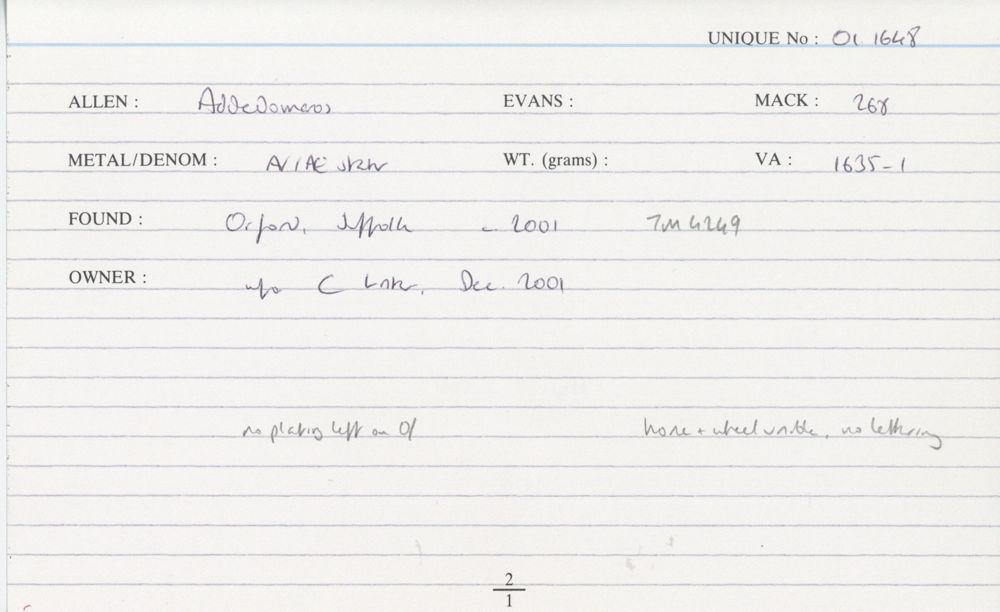 UNIQUE No : 01.1648
ALLEN : Addedomaros EVANS : MACK : 268
METAL/DENOM : AV/AE stater WT. (grams) : VA : 1635-1
FOUND : Orford, Suffolk c. 2001 TM 4249
OWNER : w/o C Dec. 2001
no plating left on O/ horse + wheel visible, no lettering
2
1